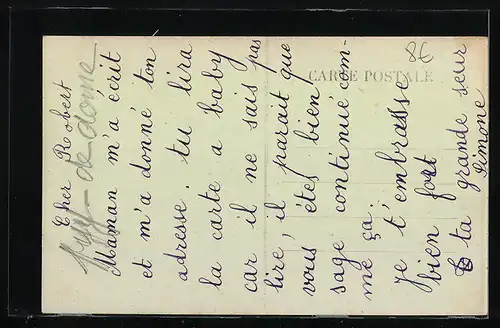 Cher Robert
Puy-de-dome
Maman m'a écrit
et m'a donné ton
adresse. tu lira
la carte a baby
car il ne sais pas
lire, il parait que
vous étes bien
sage continué com-
me ça.
je t'embrasse
bien fort
ta grande seur
Simone
CARTE POSTALE
8€